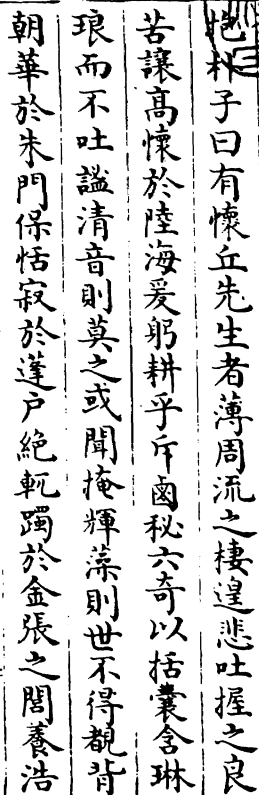 抱朴子曰有懷丘先生者薄周流之棲遑悲吐握之良
苦讓髙懷於陸海爰躬耕乎斥鹵秘六奇以括嚢含琳
琅而不吐謐清音則莫之或聞掩輝藻則世不得覩背
朝華於朱門保恬寂於蓬户絶軏躅於金張之閭養浩